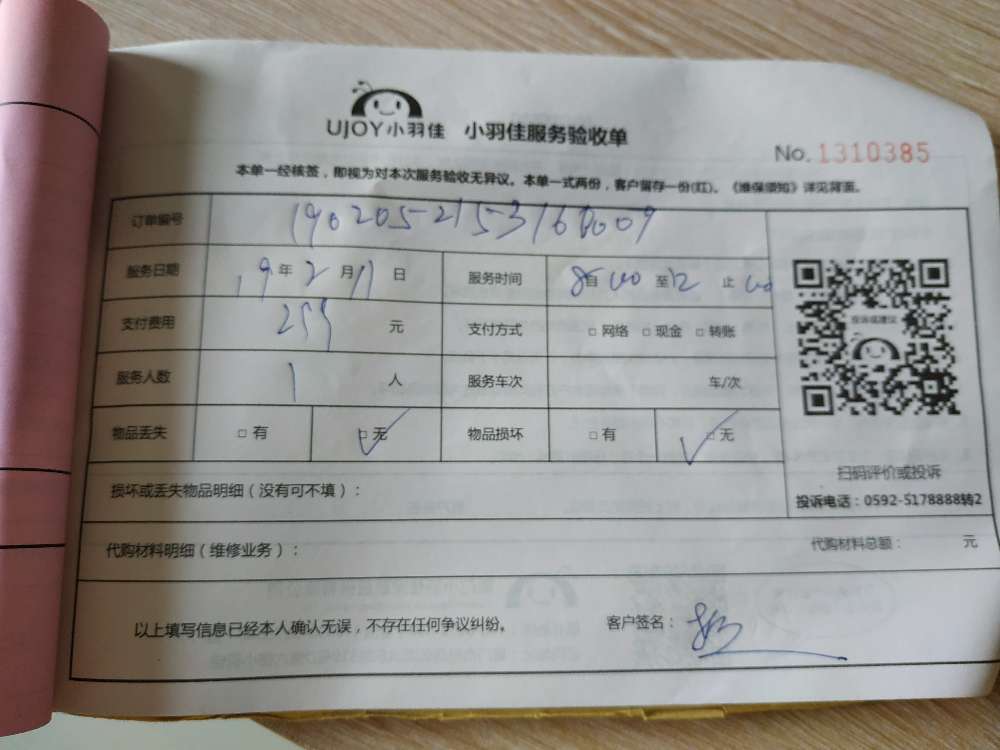 UJOY小羽佳 小羽佳服务验收单
No. 1310385
本单一经核签，即视为对本次服务验收无异议。本单一式两份，客户留存一份(红)。《维保须知》详见背面。
订单编号
服务日期 19年2月11日 服务时间 8自00至12止00
支付费用 255元 支付方式 □网络 □现金 □转账
投诉或建议
服务人数 1人 服务车次 车/次
物品丢失 □有 □无 物品损坏 □有 □无
扫码评价或投诉
损坏或丢失物品明细（没有可不填）：
投诉电话：0592-5178888转2
代购材料明细（维修业务）： 代购材料总额： 元
以上填写信息已经本人确认无误，不存在任何争议纠纷。 客户签名：